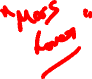 "Mass
Lover"